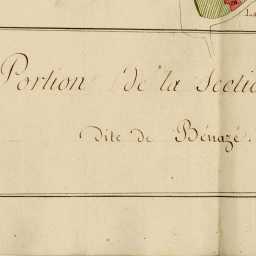 La
Portion de la Sectio
dite de Bénazé.